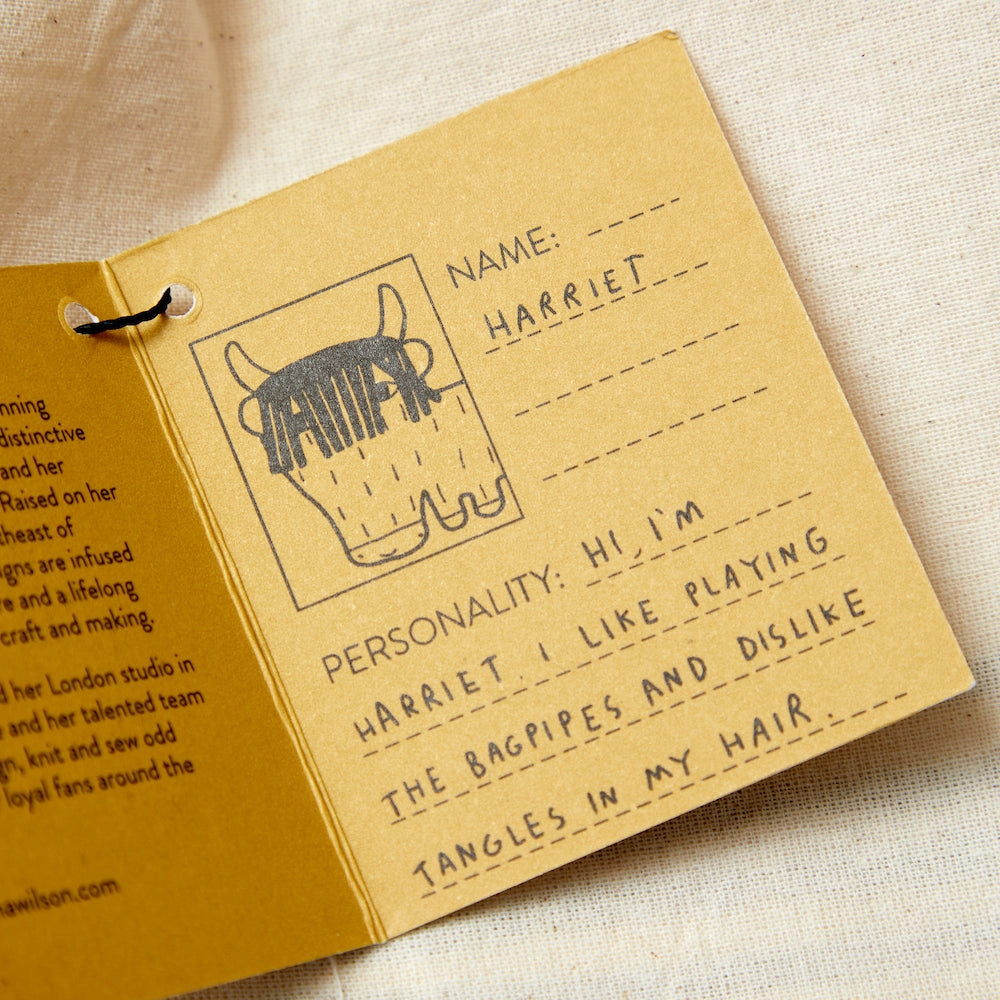 distinctive
and her
Raised on her
of
are infused
and a lifelong
craft and making.
her London studio in
and her talented team
knit and sew odd
loyal fans around the
NAME:
HARRIET
PERSONALITY: HI, I'M
HARRIET. I LIKE PLAYING
THE BAGPIPES AND DISLIKE
TANGLES IN MY HAIR.